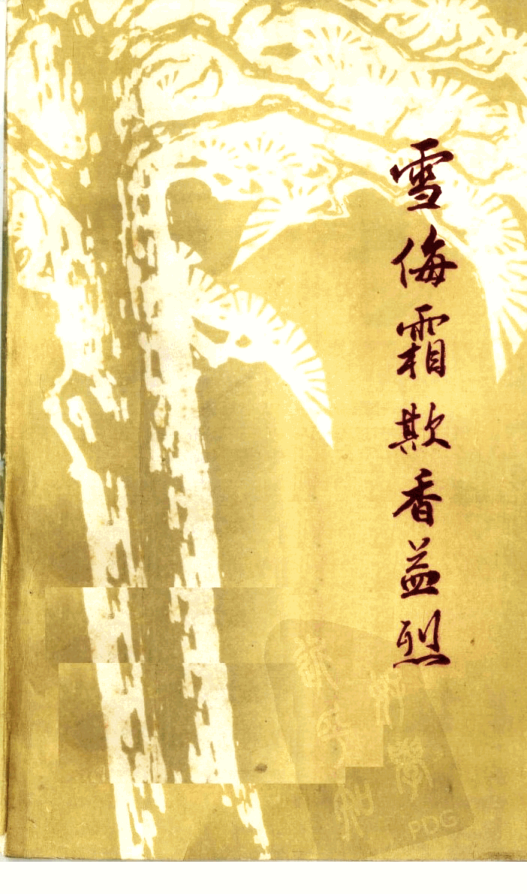 雪侮霜欺香益烈
PDG